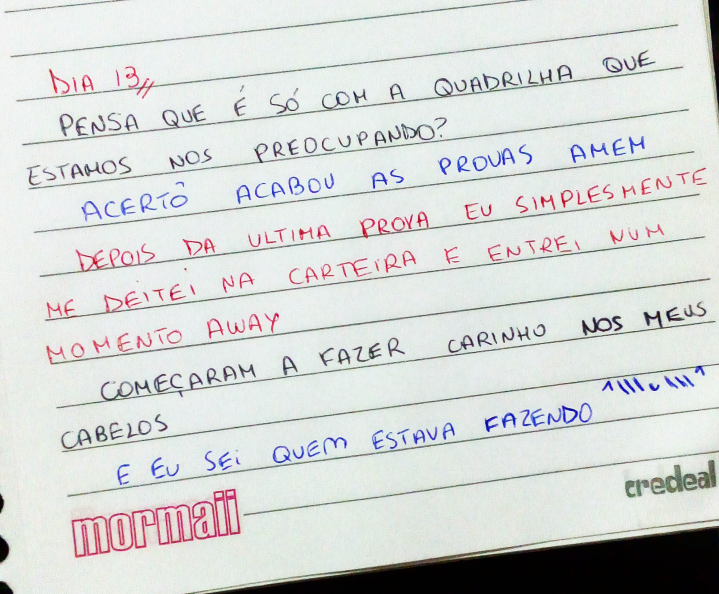 DIA 13,,
PENSA QUE É SÓ COM A QUADRILHA QUE
ESTAMOS NOS PREOCUPANDO?
ACERTÔ ACABOU AS PROVAS AMEM
DEPOIS DA ULTIMA PROVA EU SIMPLESMENTE
ME DEITEI NA CARTEIRA E ENTREI NUM
MOMENTO AWAY
COMEÇARAM A FAZER CARINHO NOS MEUS
CABELOS
E EU SEI QUEM ESTAVA FAZENDO ^\\\u\\\^
mormaii
credeal